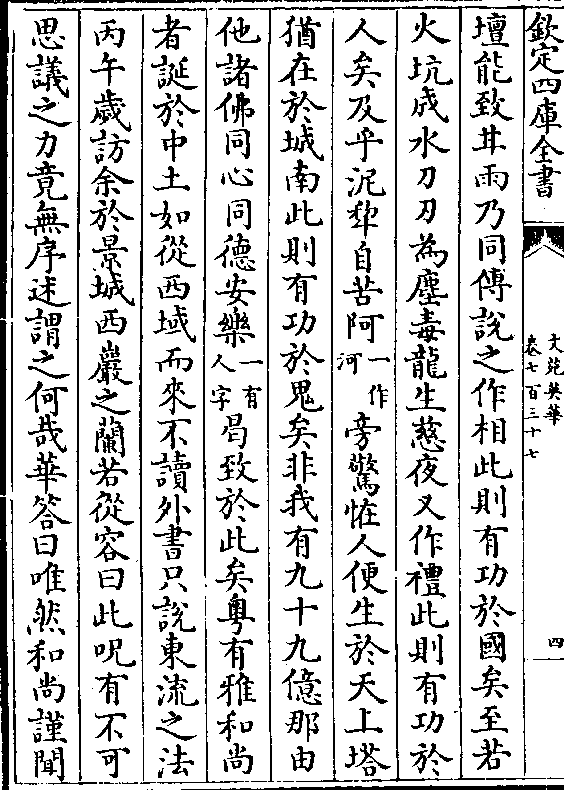 欽定四庫全書
文苑英華
卷七百三十七
四
壇能致甘雨乃同傅說之作相此則有功於國矣至若
火坑成水刀刃為塵毒龍生慈夜叉作禮此則有功於
人矣及乎泥犂自苦阿一作河旁驚怪人便生於天上塔
猶在於城南此則有功於鬼矣非我有九十九億那由
他諸佛同心同德安樂一有人字曷致於此矣粵有雅和尚
者誕於中土如從西域而來不讀外書只說東流之法
丙午歲訪余於景城西巖之蘭若從容曰此呪有不可
思議之力竟無序述謂之何哉華答曰唯然和尚謹聞